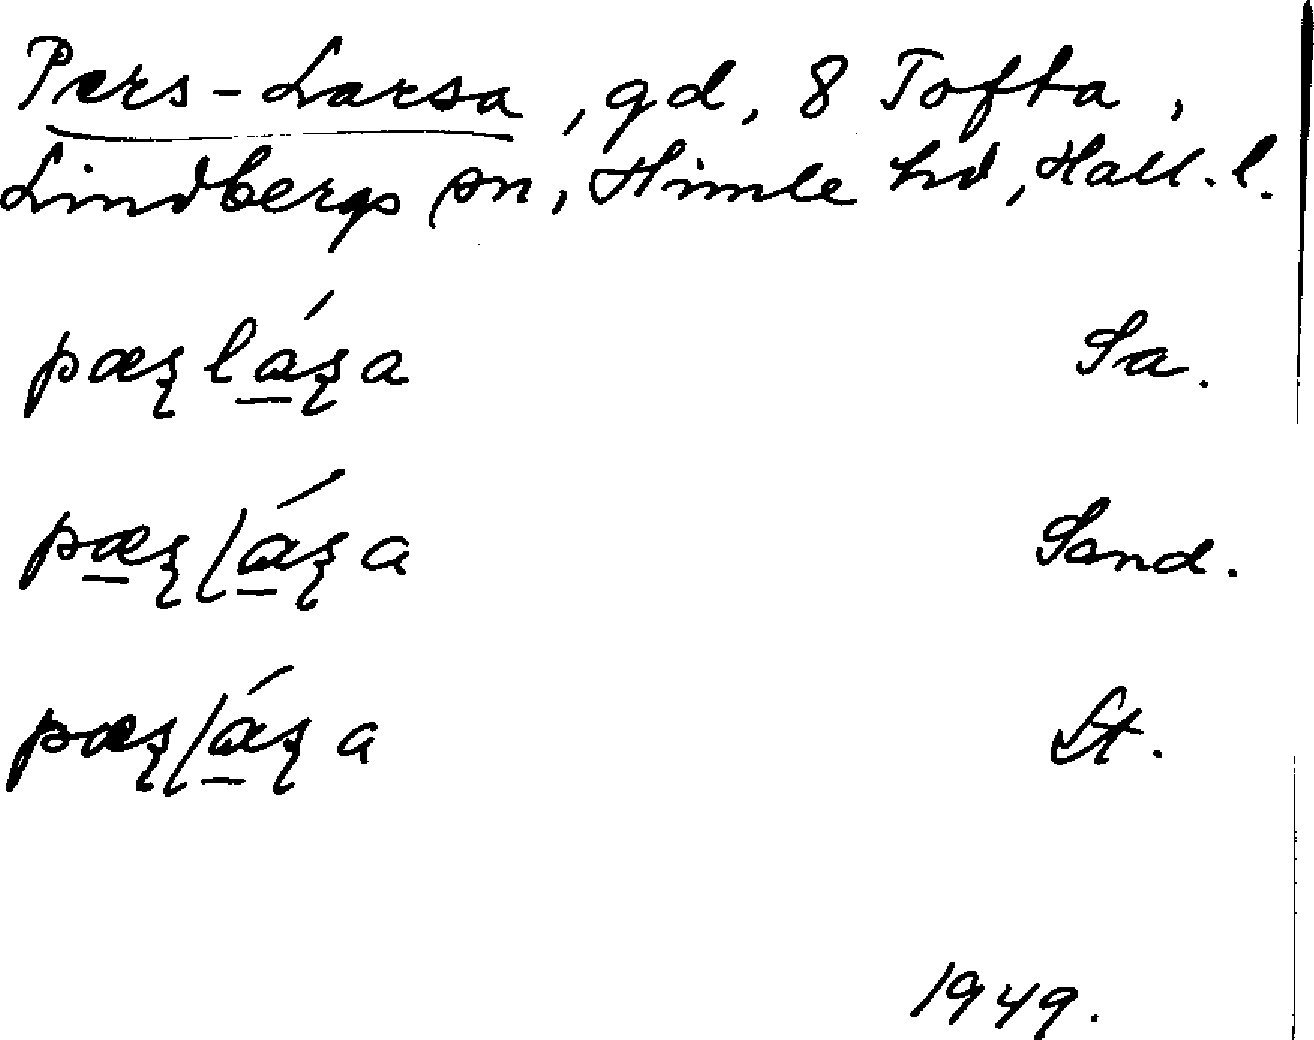 Pers-Larsa, gd, 8 Tofta,
Lindbergs sn, Himle hd, Hall. l.
pæʂláʂa Sa.
pæʂláʂa Sand.
pæʂláʂa St.
1949.